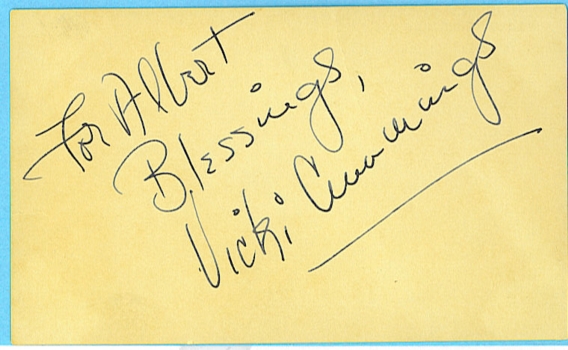 For Albert
Blessings,
Vicki Cummings